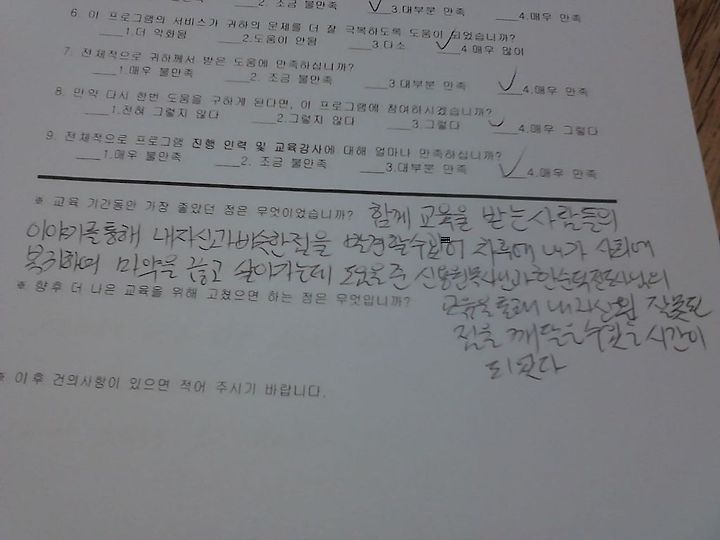 2. 조금 불만족 ✓3.대부분 만족 ___4.매우 만족
6. 이 프로그램의 서비스가 귀하의 문제를 더 잘 극복하도록 도움이 되었습니까?
___1.더 악화됨 ___2.도움이 안됨 ___3.다소 ✓4.매우 많이
7. 전체적으로 귀하께서 받은 도움에 만족하십니까?
___1.매우 불만족 ___2. 조금 불만족 ___3.대부분 만족 ✓4.매우 만족
8. 만약 다시 한번 도움을 구하게 된다면, 이 프로그램에 참여하시겠습니까?
___1.전혀 그렇지 않다 ___2.그렇지 않다 ___3.그렇다 ✓4.매우 그렇다
9. 전체적으로 프로그램 진행 인력 및 교육강사에 대해 얼마나 만족하십니까?
___1.매우 불만족 ___2. 조금 불만족 ___3.대부분 만족 ✓4.매우 만족
※ 교육 기간동안 가장 좋았던 점은 무엇이었습니까? 함께 교육을 받는 사람들의
이야기를 통해 내자신과 비슷한점을 발견할수 차후에 내가 사회에
복귀하여 마약을 끊고 살아가는데 도움을 준
※ 향후 더 나은 교육을 위해 고쳤으면 하는 점은 무엇입니까? 교육을 통해 내 자신의 잘못된
점을 깨달을수있는 시간이
되었다
※ 이후 건의사항이 있으면 적어 주시기 바랍니다.